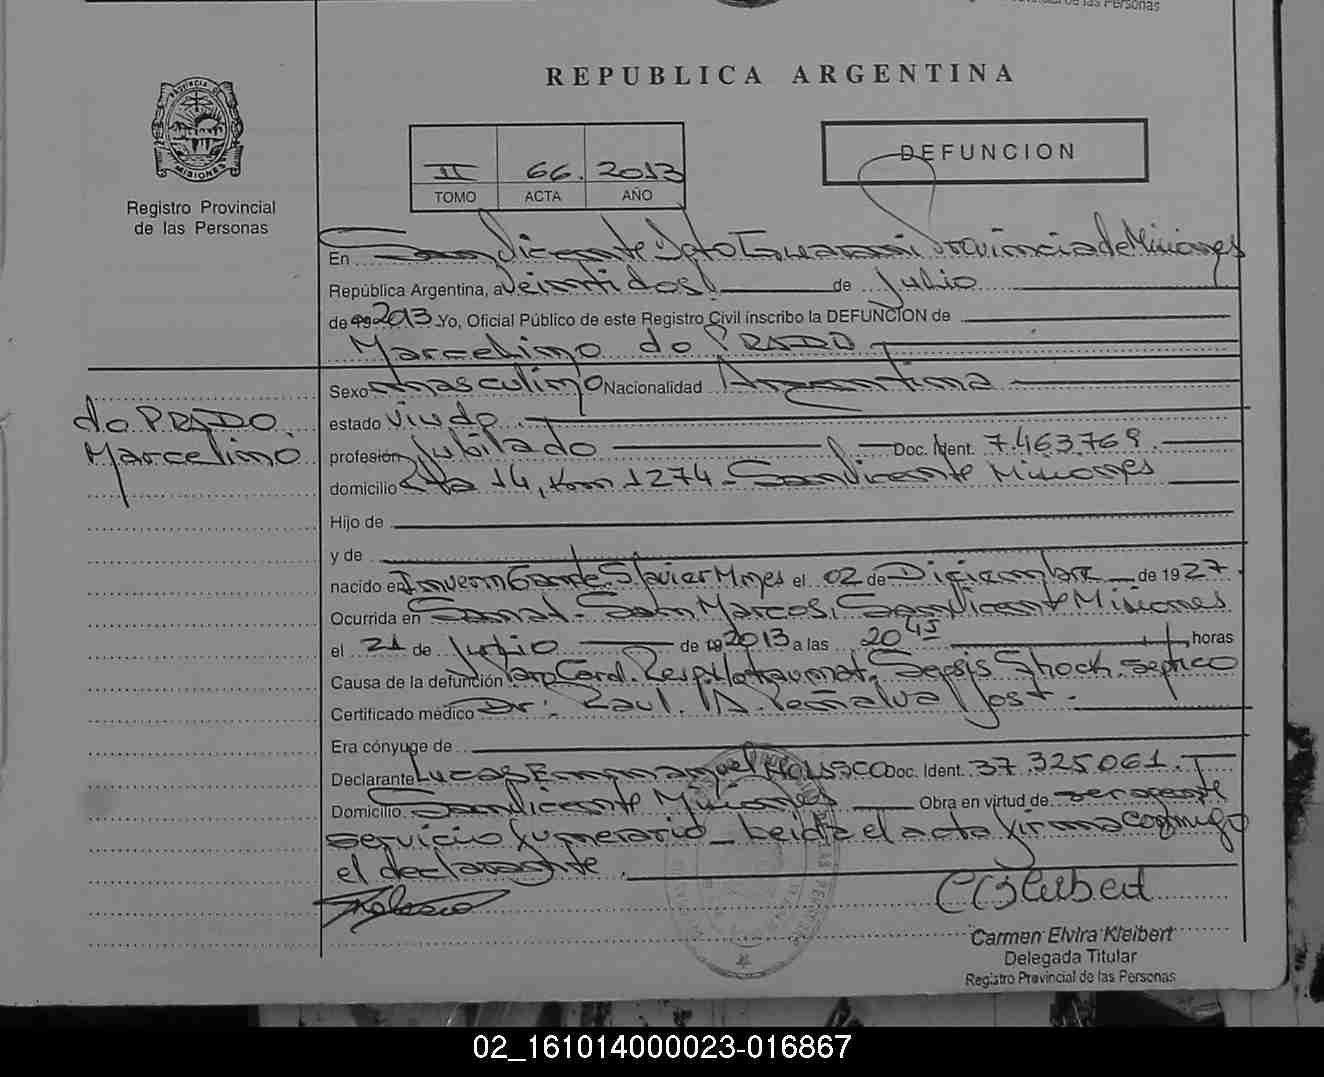 de las Personas
REPUBLICA ARGENTINA
PROVINCIA DE
MISIONES
Registro Provincial
de las Personas
II 66. 2013
TOMO ACTA AÑO
DEFUNCION
En San Vicente Dpto Guarani Provincia de Misiones
República Argentina, a Veintidos de Julio
de 19 2013 Yo, Oficial Público de este Registro Civil inscribo la DEFUNCION de
Marcelino do PRADO
Sexo masculino Nacionalidad Argentina
do PRADO
Marcelino
estado viudo.
profesión Jubilado Doc. Ident. 7.463.769.
domicilio Rta 14, km 1274 - San Vicente Misiones
Hijo de
y de
nacido en S. Javier Mnes el 02 de Diciembre de 1927.
Ocurrida en Sanat. San Marcos, San Vicente Misiones
el 21 de Julio de 19 2013 a las 20 45 horas
Causa de la defunción Paro Card. Resp. Sepsis Shock septico
Certificado médico Dr: Raul. A. Peñalva Jost.
Era cónyuge de
Declarante Lucas Emmanuel Doc. Ident. 37.325061.
Domicilio San Vicente Misiones Obra en virtud de ser agente
servicio funerario - Leida el acta firma conmigo
el declarante.
Carmen Elvira Kleibert
Delegada Titular
Registro Provincial de las Personas
02_161014000023-016867